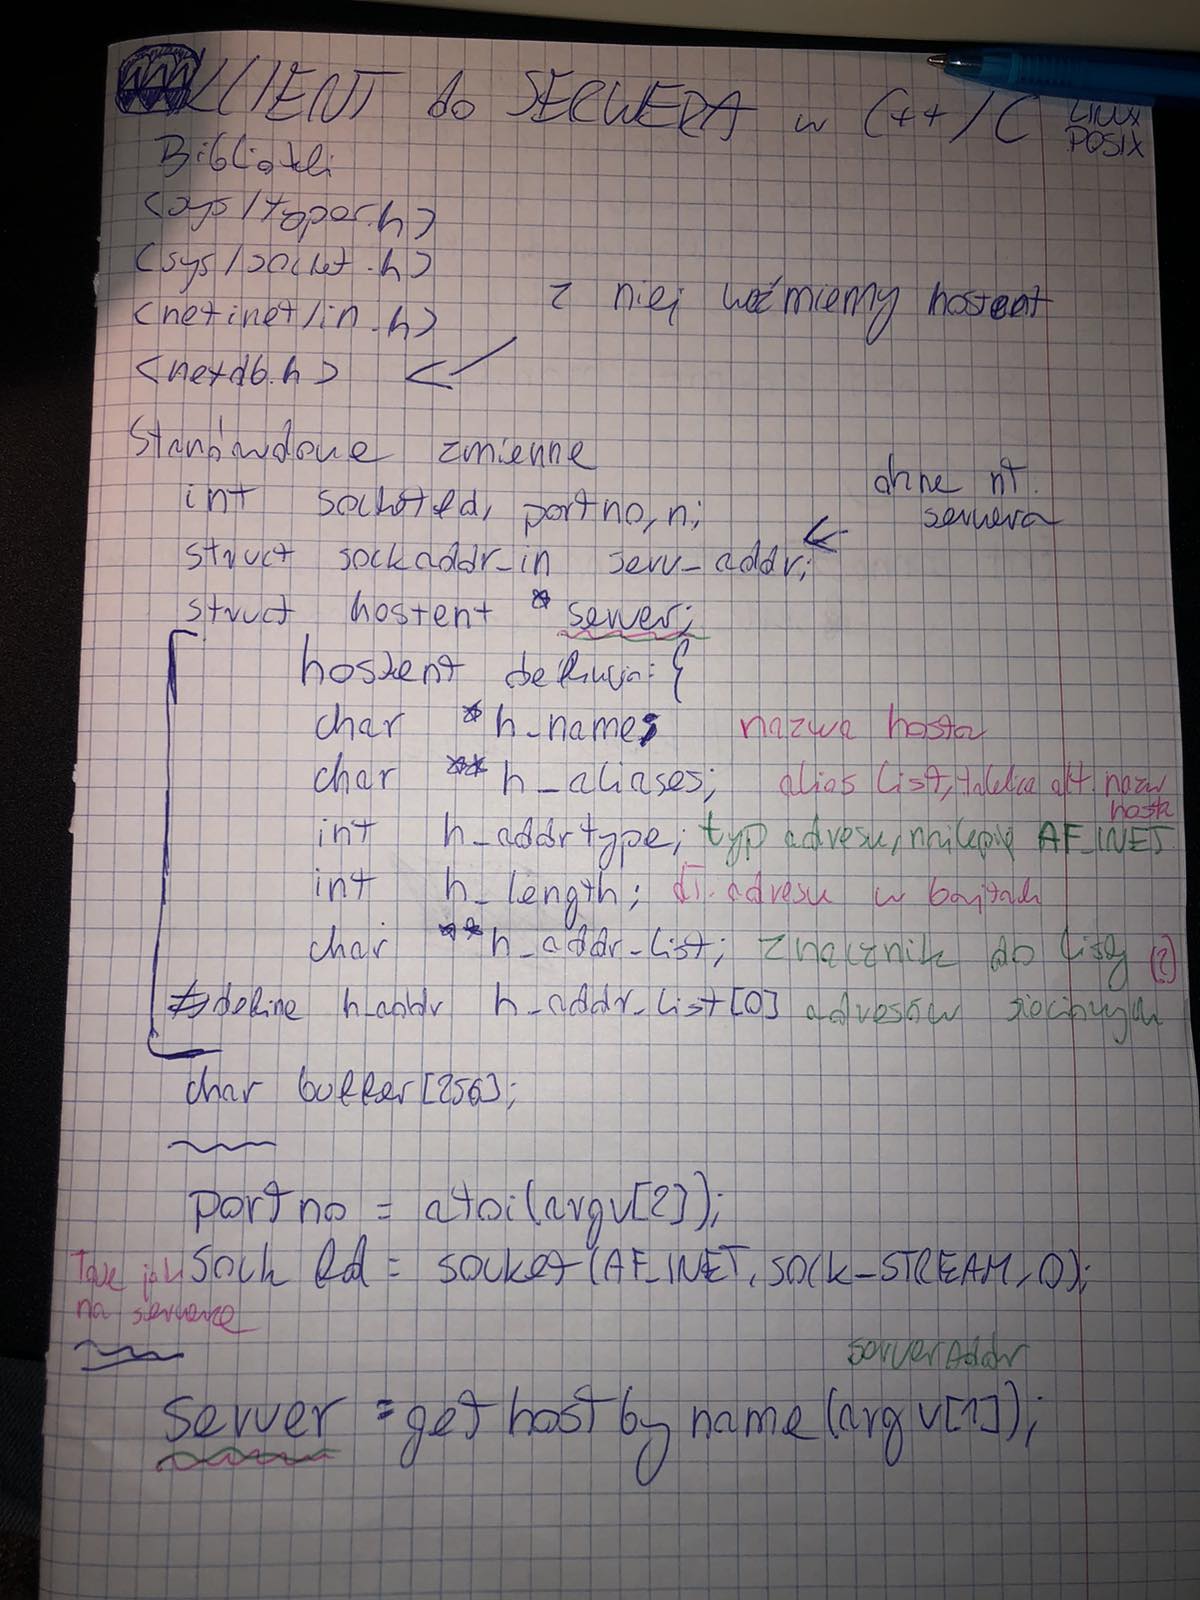 KLIENT do SERWERA w C++/C LINUX POSIX
Biblioteki
<sys/types.h>
<sys/socket.h>
<netinet/in.h>
z niej weźmiemy hostent
<netdb.h>
Standardowe zmienne
dane nt. serwera
int socketfd, portno, n;
struct sockaddr_in serv_addr;
struct hostent *server;
hostent definicja: {
char *h_name; nazwa hosta
char **h_aliases; alias list, tablica alt. nazw hosta
int h_addrtype; typ adresu, najlepiej AF_INET
int h_length; dł. adresu w bajtach
char **h_addr_list; znacznik do listy (?)
#define h_addr h_addr_list[0] adresów sieciowych
char buffer[256];
portno = atoi(argv[2]);
Takie jak na serwerze
sockfd = socket(AF_INET, SOCK_STREAM, 0);
serverAddr
server = gethostbyname(argv[1]);